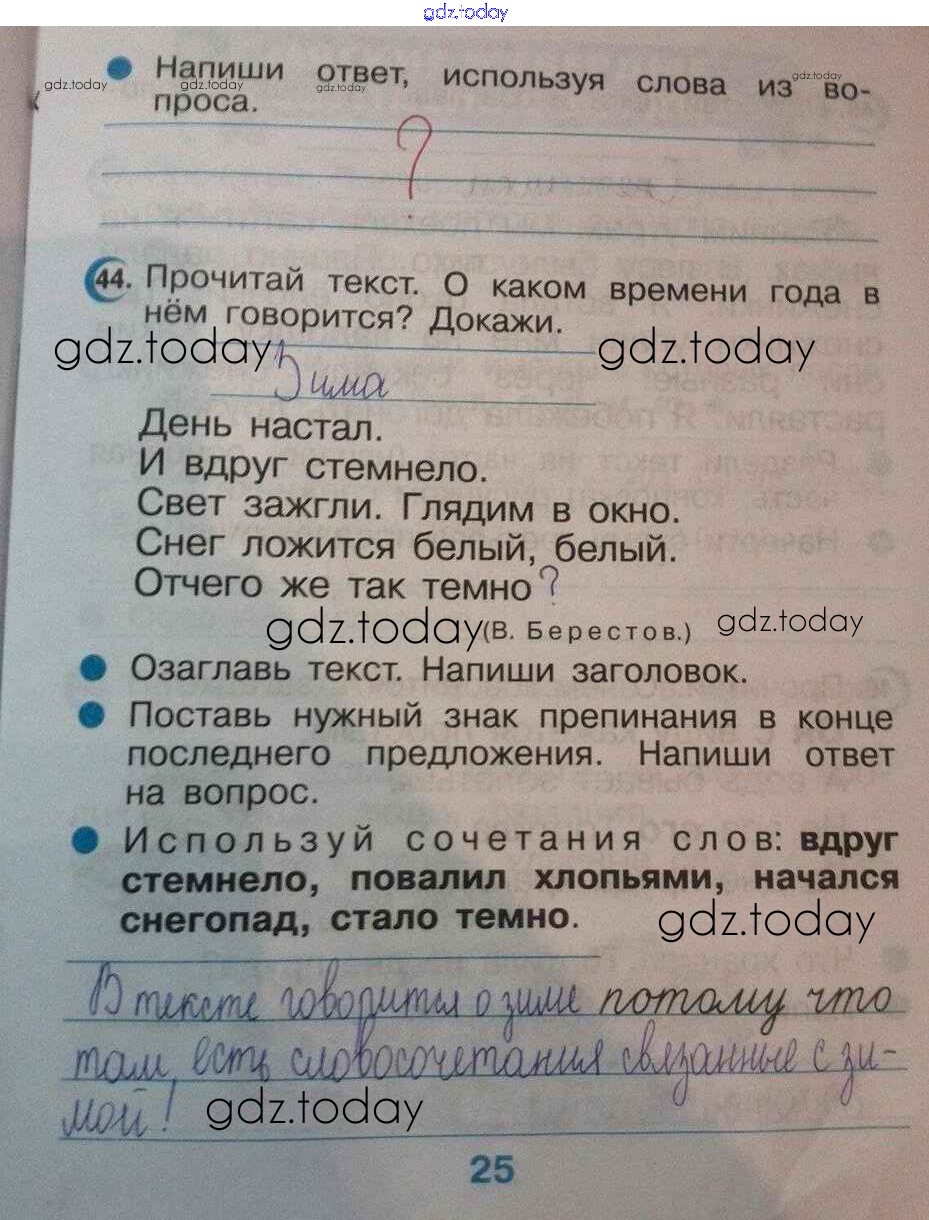 gdz.today
Напиши ответ, используя слова из во-
gdz.today gdz.today gdz.today gdz.today
проса.
?
44. Прочитай текст. О каком времени года в
нём говорится? Докажи.
gdz.today gdz.today
Зима
День настал.
И вдруг стемнело.
Свет зажгли. Глядим в окно.
Снег ложится белый, белый.
Отчего же так темно?
gdz.today (В. Берестов.) gdz.today
Озаглавь текст. Напиши заголовок.
Поставь нужный знак препинания в конце
последнего предложения. Напиши ответ
на вопрос.
Используй сочетания слов: вдруг
стемнело, повалил хлопьями, начался
снегопад, стало темно.
gdz.today
В тексте говорится о зиме потому что
там, есть словосочетания связанные с зи-
мой!
gdz.today
25